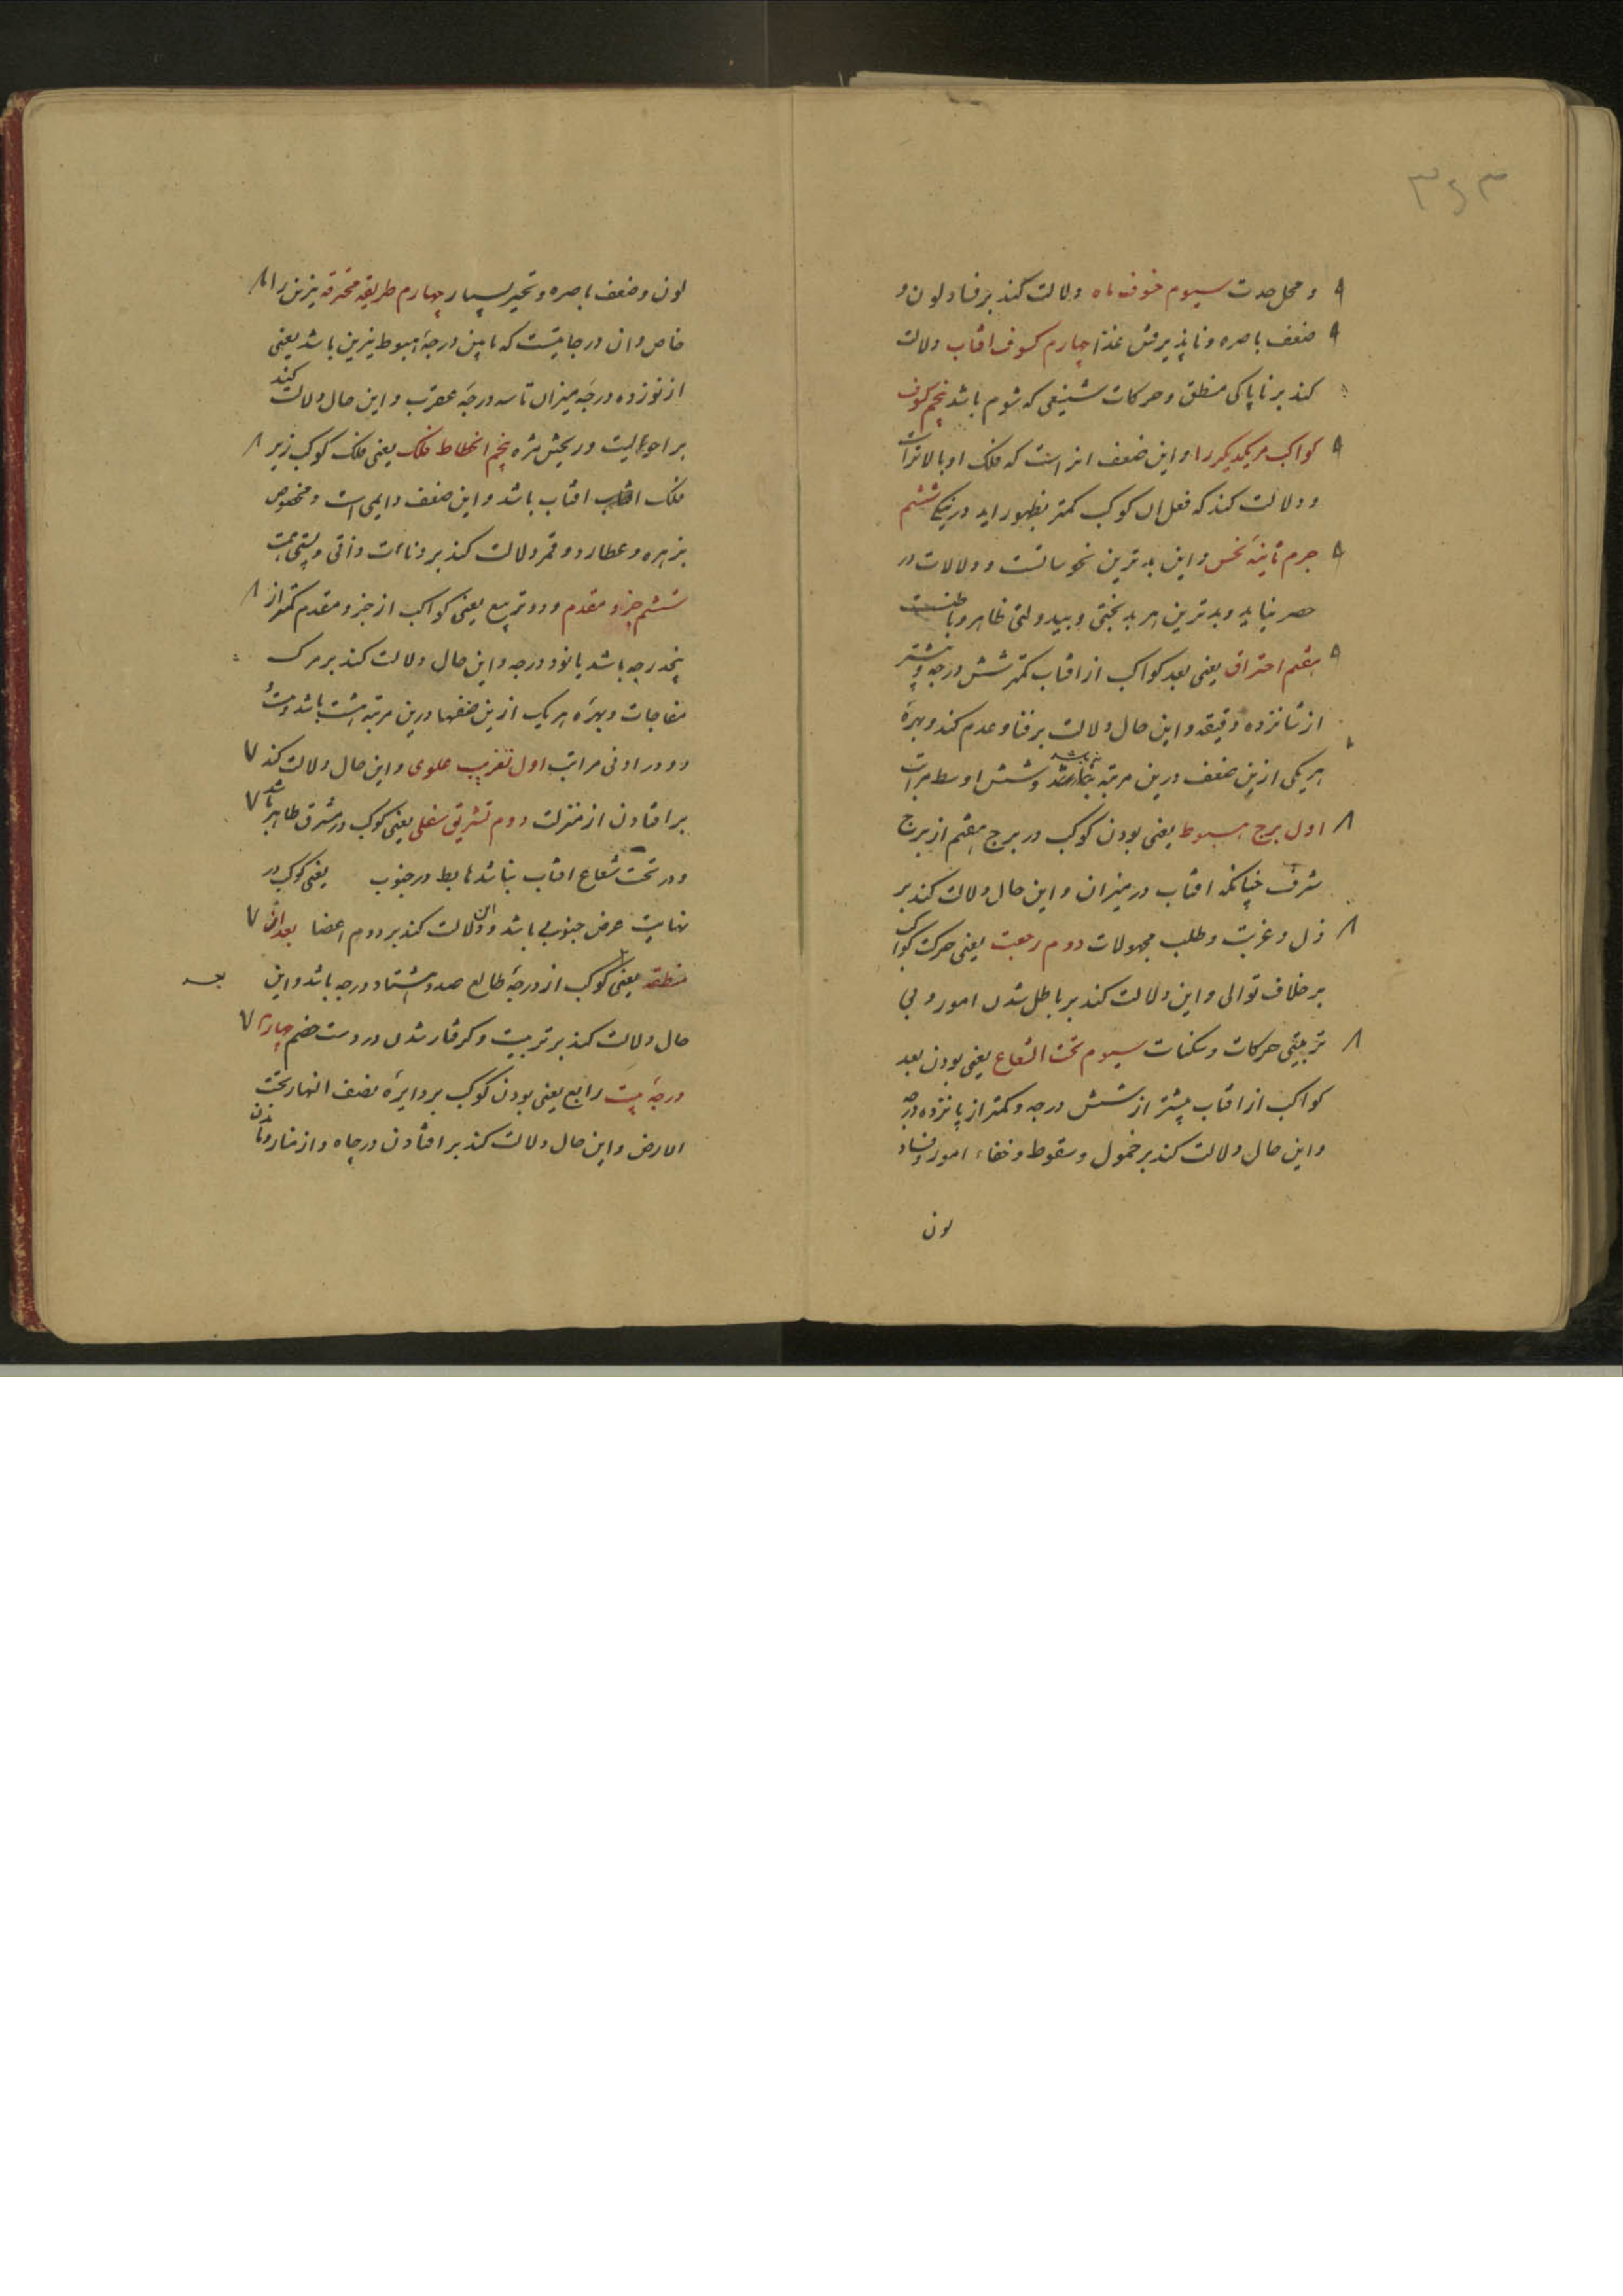 ۳۶۳
۹ و محل حدت سیوم خوف ماه دلالت کند بر فساد لون و
۹ ضعف باصره و ناپذیرفتن غذا چهارم کسوف افتاب دلالت
کند بر ناپاکی منطق و حرکات شنیعی که شوم باشد پنجم کسوف
۹ کواکب مر یکدیکر را و این ضعف انراست که فلک او بالاتراست
و دلالت کند که فعل ان کوکب کمتر بظهور اید در نیکی ششم
۹ جرم نحس و این بدترین نحوساتست و دلالات در
حصر نیاید و بدترین هر بدبختی و بیدولتی ظاهر و باطنست
۹ هفتم احتراق یعنی بعد کواکب از افتاب کمتر شش درجه و بیشتر
از شانزده دقیقه و این حال دلالت بر فنا و عدم کند و بهرهٔ
هر یکی ازین ضعف درین مرتبه نه باشد و شش اوسط مراتب
۸ اول برج هبوط یعنی بودن کوکب در برج هفتم از برج
شرف چنانکه افتاب در میزان و این حال دلالت کند بر
۸ ذل و غربت و طلب مجهولات دوم رجعت یعنی حرکت کواکب
بر خلاف توالی و این دلالت کند بر باطل شدن امور و بی
۸ ترتیبی حرکات و سکنات سیوم تحت الشعاع یعنی بودن بعد
کواکب از افتاب بیشتر از شش درجه و کمتر از پانزده درجه
و این حال دلالت کند بر خمول و سقوط و خفاء امور و فساد
لون
لون و ضعف باصره و تحیر بسیار چهارم طریقه محترقه نیرین را ۸
خاص و ان درجاتیست که مابین درجهٔ هبوط نیرین باشد یعنی
از نوزده درجهٔ میزان تا سه درجهٔ عقرب و این حال دلالت کند
بر احولیت و ریختن مژه پنجم انحطاط فلک یعنی فلک کوکب زیر ۸
فلک افتاب باشد و این ضعف دایمی است و مخصوص
بزهره و عطارد و قمر دلالت کند بر دنائت ذاتی و پستی همت
ششم جزو مقدم و دو تربیع یعنی کواکب از جزو مقدم کمتر از ۸
پنجدرجه باشد یا نود درجه و این حال دلالت کند بر مرک
مفاجات و بهرهٔ هر یک ازین ضعفها درین مرتبه هشت باشد و
دو در ادنی مراتب اول تغریب علوی و این حال دلالت کند ۷
بر افتادن از منزلت دوم تشریق سفلی یعنی کوکب در مشرق ظاهر باشد ۷
و در تحت شعاع افتاب نباشد هابط در جنوب یعنی کوکب در
نهایت عرض جنوبی باشد و این دلالت کند بر دوم اعضا بعد از ۷
منطقه یعنی کوکب از درجهٔ طالع صد و هشتاد درجه باشد و این
حال دلالت کند بر تربیت و کرفتار شدن در دست خصم چهارم ۷
درجهٔ بیت رابع یعنی بودن کوکب بر دایرهٔ نصف النهار تحت
الارض و این حال دلالت کند بر افتادن در چاه و از مناره